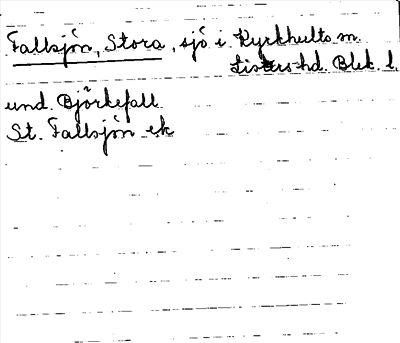 Fallsjön, Stora, sjö i Kyrkhults sn.
Listers hd. Blek. l.
und. Björkefall.
St. Fallsjön ek